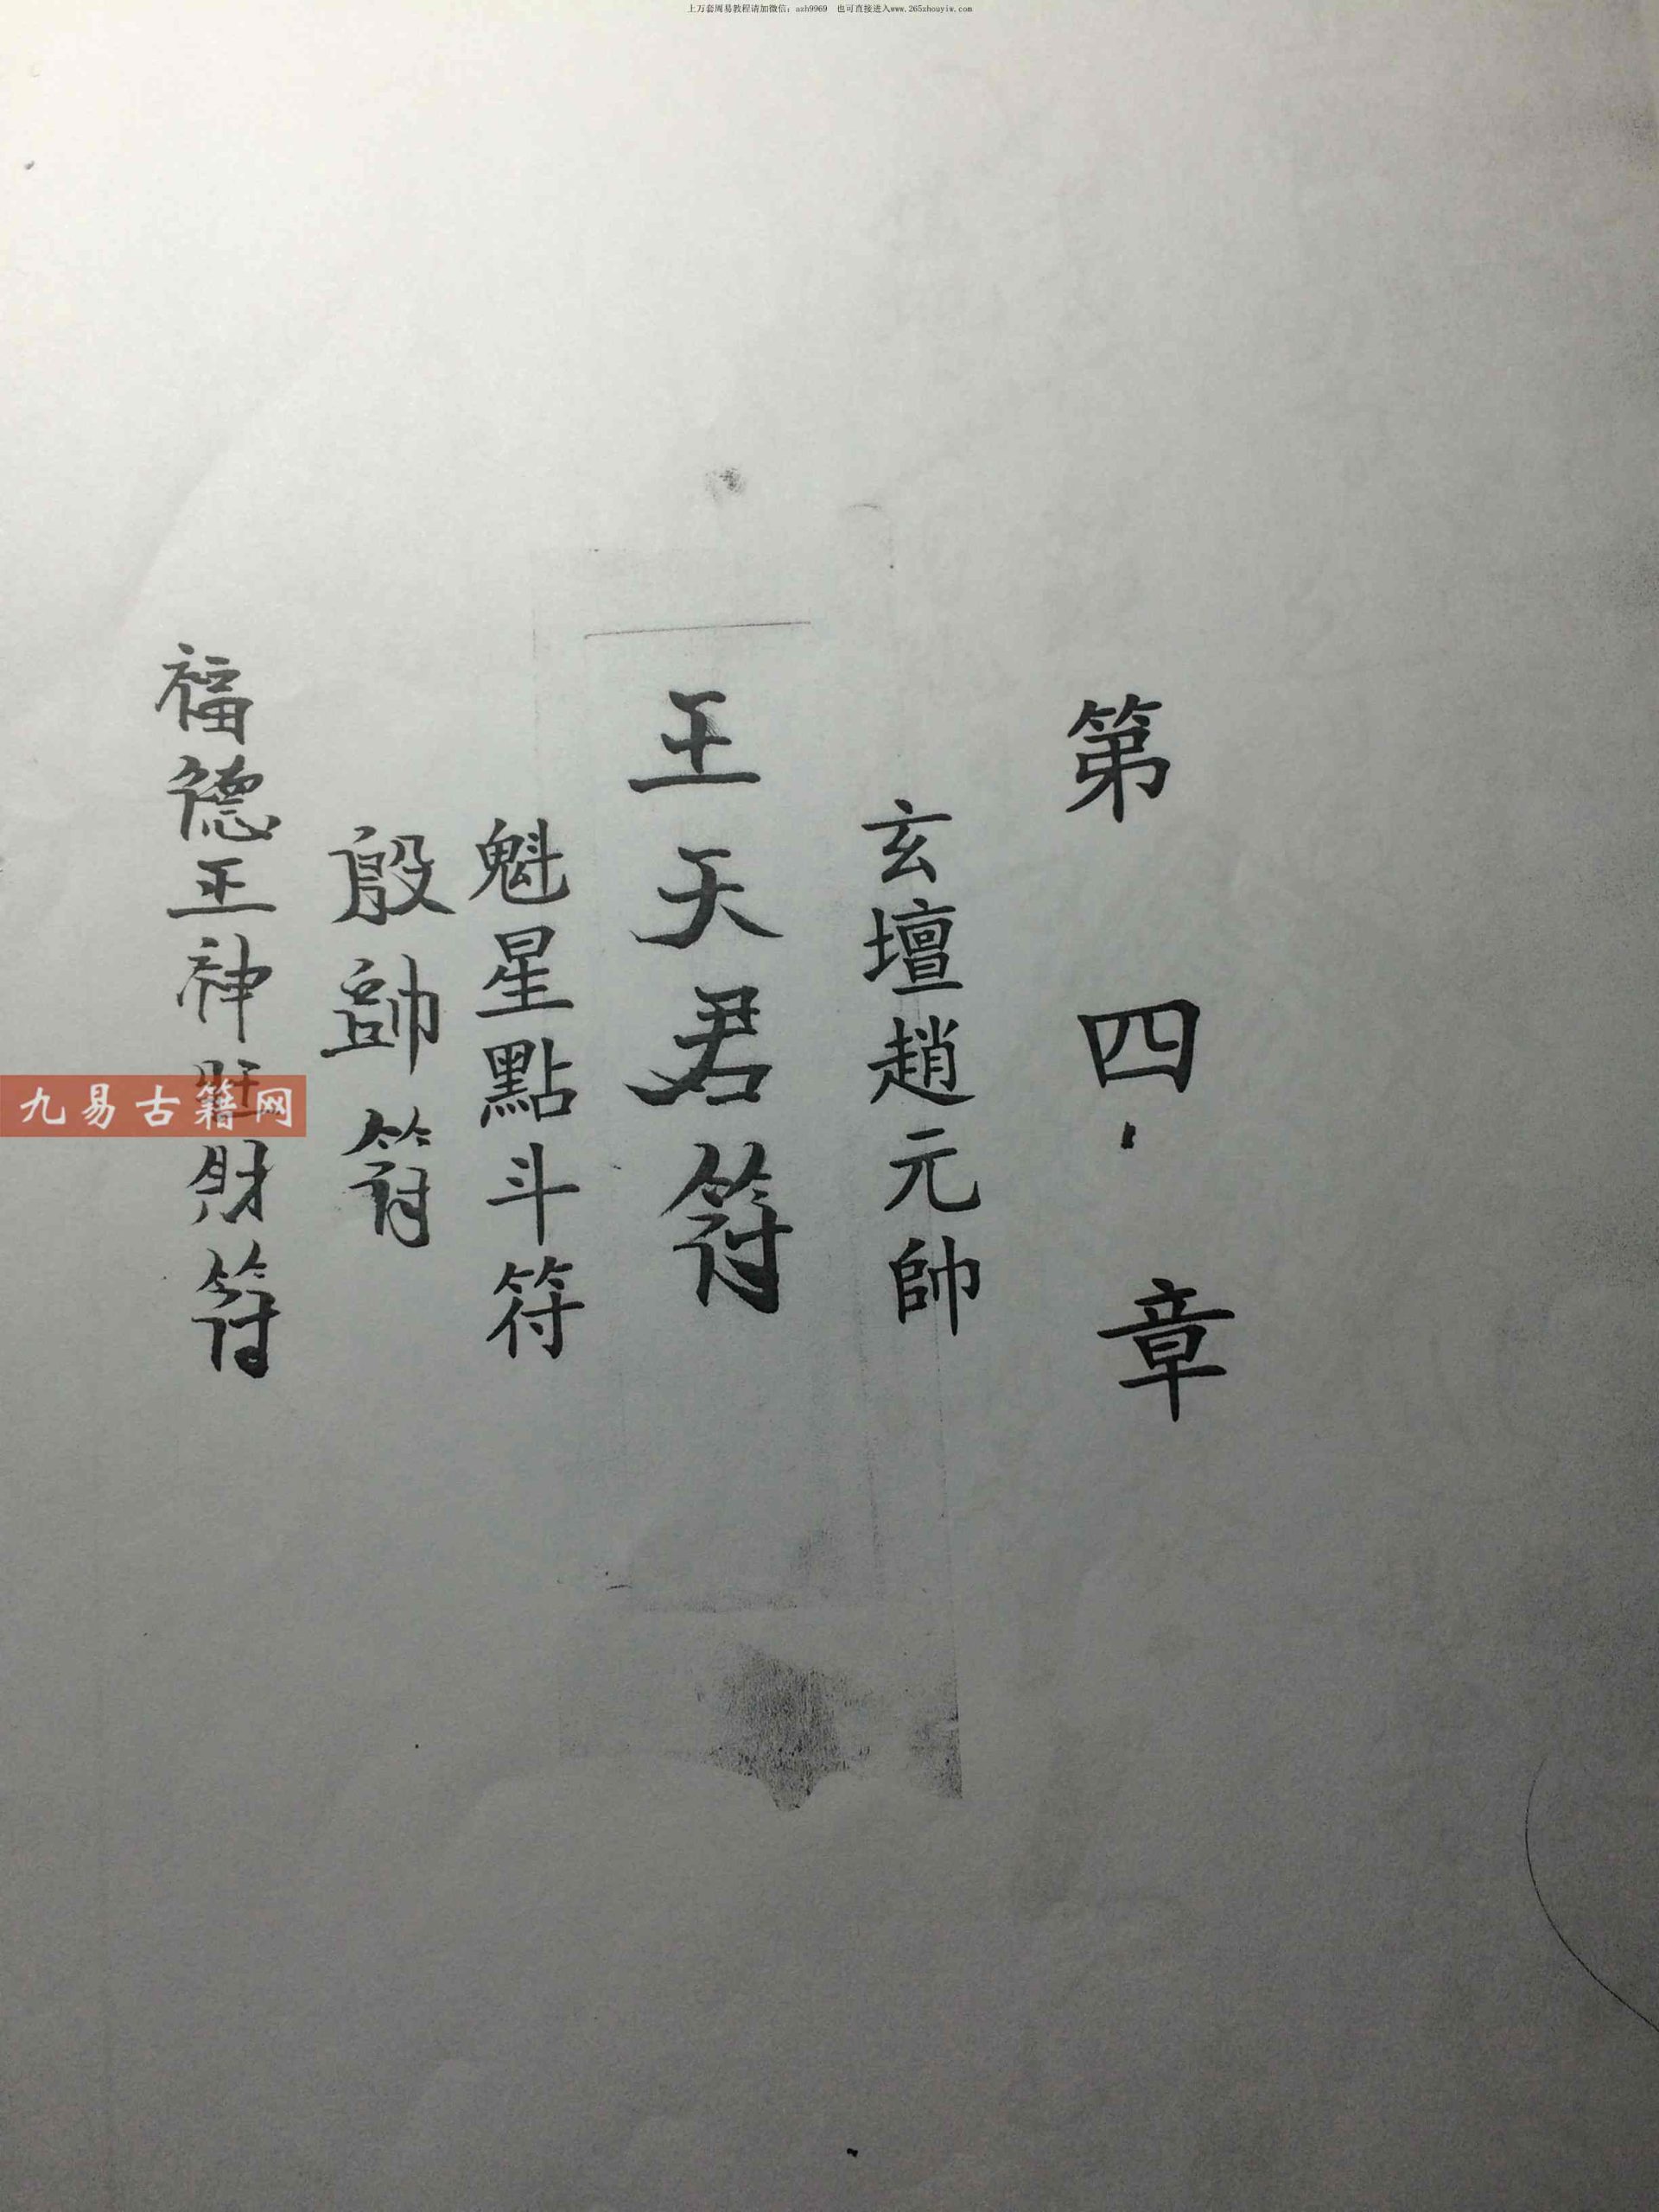 上万套周易教程请加微信：azh9969 也可直接进入www.265zhouyiw.com
第四章
玄壇趙元帥
王天君符
魁星點斗符
殷帥符
福德正神財符
九易古籍网